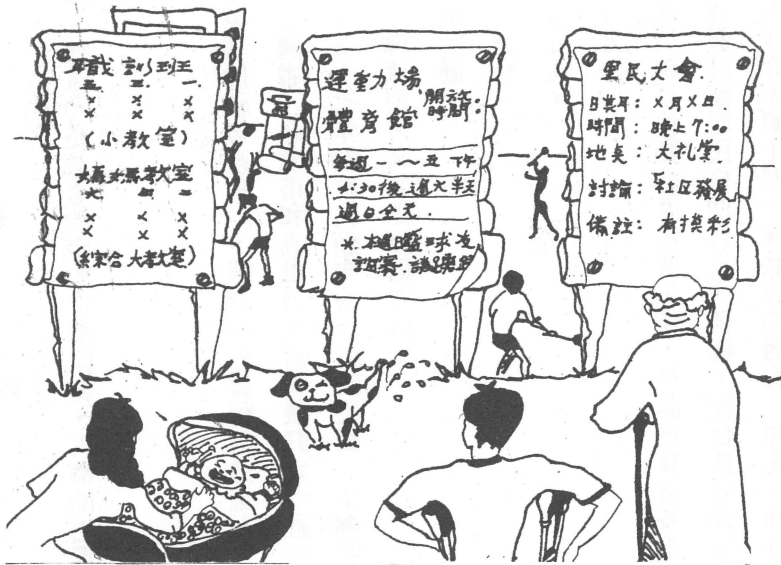 職訓班
三 二 一
× × ×
× × ×
(小教室)
媽媽教室
× × ×
× × ×
(綜合大教室)
運動場
體育館
開放
時間:
每週一~五下午
4:30後週六半天
週日全天.
里民大會.
日期: ×月×日.
時間: 晚上7:00
地點: 大礼堂.
討論: 社區發展
備註: 有摸彩